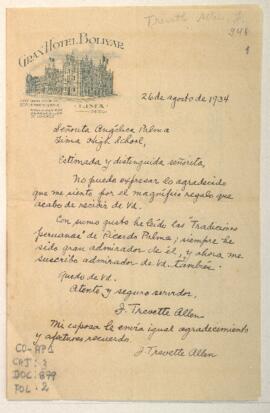 Trevette Allen, J.
248
1
GRAN HOTEL BOLIVAR
LIMA
26 de agosto de 1934
Señorita Angélica Palma
Lima High School,
Estimada y distinguida señorita,
No puedo expresar lo agradecido
que me siento por el magnífico regalo que
acabo de recibir de Vd.
Con sumo gusto he leído las "Tradiciones
peruanas" de Ricardo Palma; siempre he
sido gran admirador de él, y ahora me
suscribo admirador de Vd. también.
Quedo de Vd.
Atento y seguro servidor,
J. Trevette Allen
Mi esposa le envía igual agradecimiento
y afectuoso recuerdo.
J. Trevette Allen
CO-APA
CAJ: 2
DOC: 879
FOL: 2